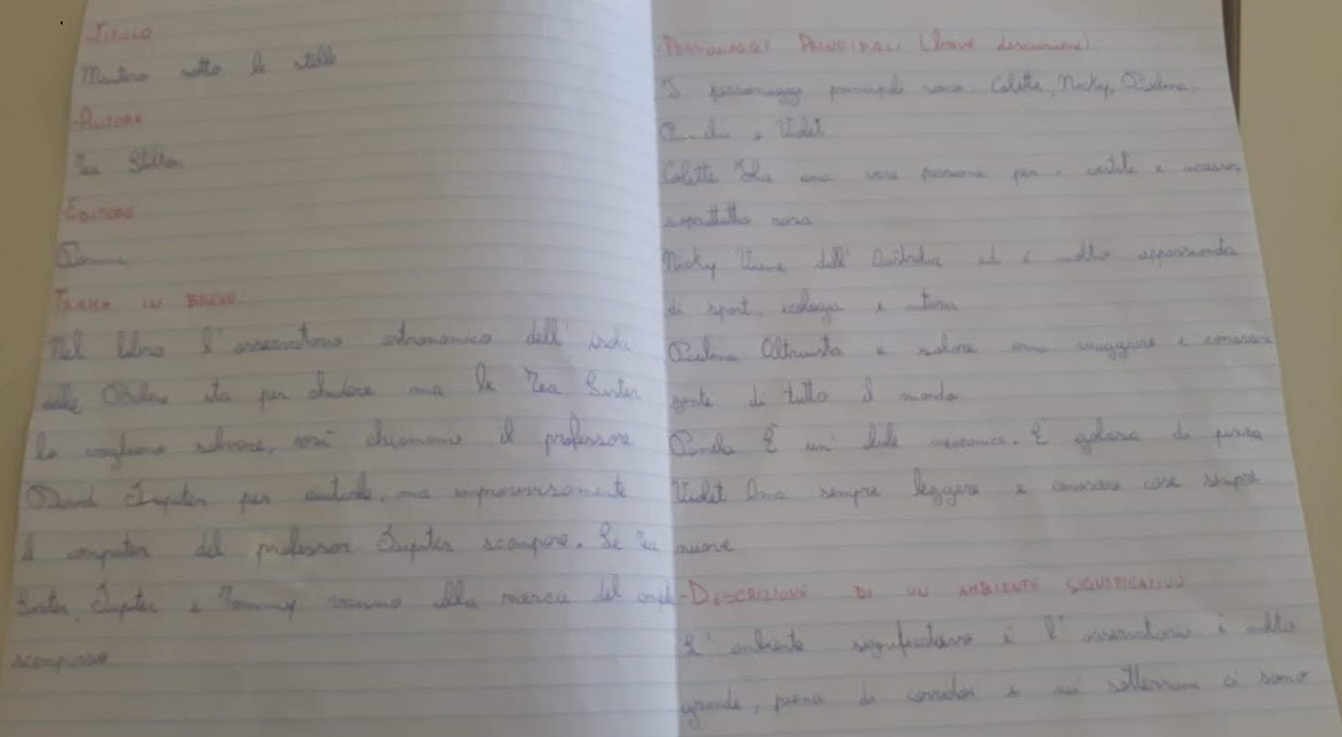 -TITOLO
Mistero sotto le stelle
-AUTORE
Tea Stilton
-EDITORE
Piemme
TRAMA IN BREVE:
Nel libro l'osservatorio astronomico dell'isola
delle Balene sta per chudere ma le Tea Sister
lo vogliono salvare, così chiamano il professore
David Jupiter per aiutarle, ma improvvisamente
il computer del professor Jupiter scompare. Le Tea
Sister, Jupiter e Tommy vanno alla ricerca del
scomparso
-PERSONAGGI PRINCIPALI (breve descrizione)
I personaggi principali sono. Colette, Nicky, Paulina
Pamela e Violet
Colette Ha una vera passione per i vestiti e accessori
soprattutto rosa
Nicky Viene dall'Australia ed è molto appassionata
di sport, ecologia e natura
Paulina Altruista e solare ama viaggiare e conoscere
gente di tutto il mondo
Pamela È un' abile meccanica. È golosa di pizza
Violet Ama sempre leggere e conoscere cose sempre
nuove
-DESCRIZIONE DI UN AMBIENTE SIGNIFICATIVO
L'ambiente significativo è l'osservatorio è molto
grande, pieno di corridoi e nei sotterranei ci sono